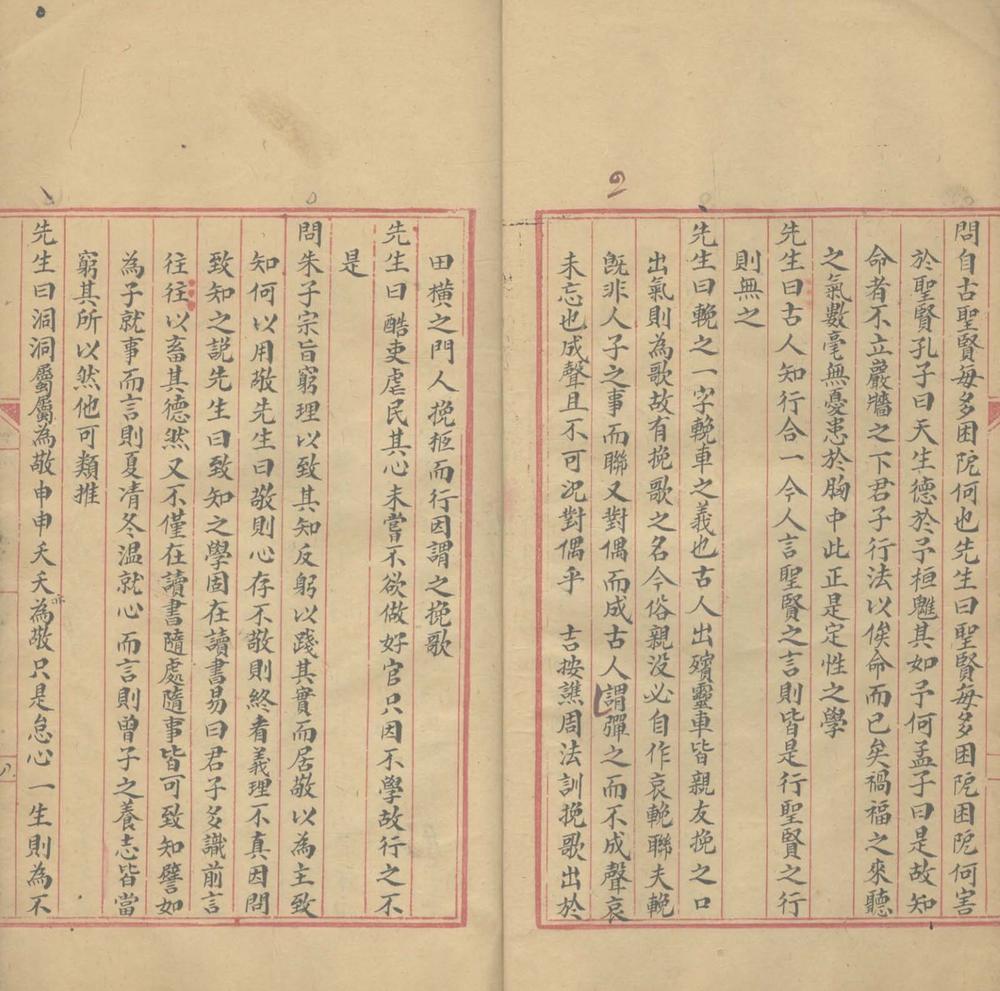 問自古聖賢每多困阨何也先生曰聖賢每多困阨困阨何害
於聖賢孔子曰天生德於予桓魋其如予何孟子曰是故知
命者不立巖牆之下君子行法以俟命而已矣禍福之來聽
之氣數毫無憂患於胸中此正是定性之學
先生曰古人知行合一今人言聖賢之言則皆是行聖賢之行
則無之
先生曰輓之一字輓車之義也古人出殯靈車皆親友挽之口
出氣則為歌故有挽歌之名今俗親没必自作哀輓聯夫輓
旣非人子之事而聯又對偶而成古人謂彈之而不成聲哀
未忘也成聲且不可況對偶乎　吉按譙周法訓挽歌出於
田橫之門人挽柩而行因謂之挽歌
先生曰酷吏虐民其心未嘗不欲做好官只因不學故行之不
是
問朱子宗旨窮理以致其知反躬以踐其實而居敬以為主致
知何以用敬先生曰敬則心存不敬則終看義理不真因問
致知之説先生曰致知之學固在讀書易曰君子多識前言
往往以畜其德然又不僅在讀書隨處隨事皆可致知譬如
為子就事而言則夏凊冬溫就心而言則曾子之養志皆當
窮其所以然他可類推
先生曰洞洞屬屬為敬申申夭夭為亦敬只是怠心一生則為不